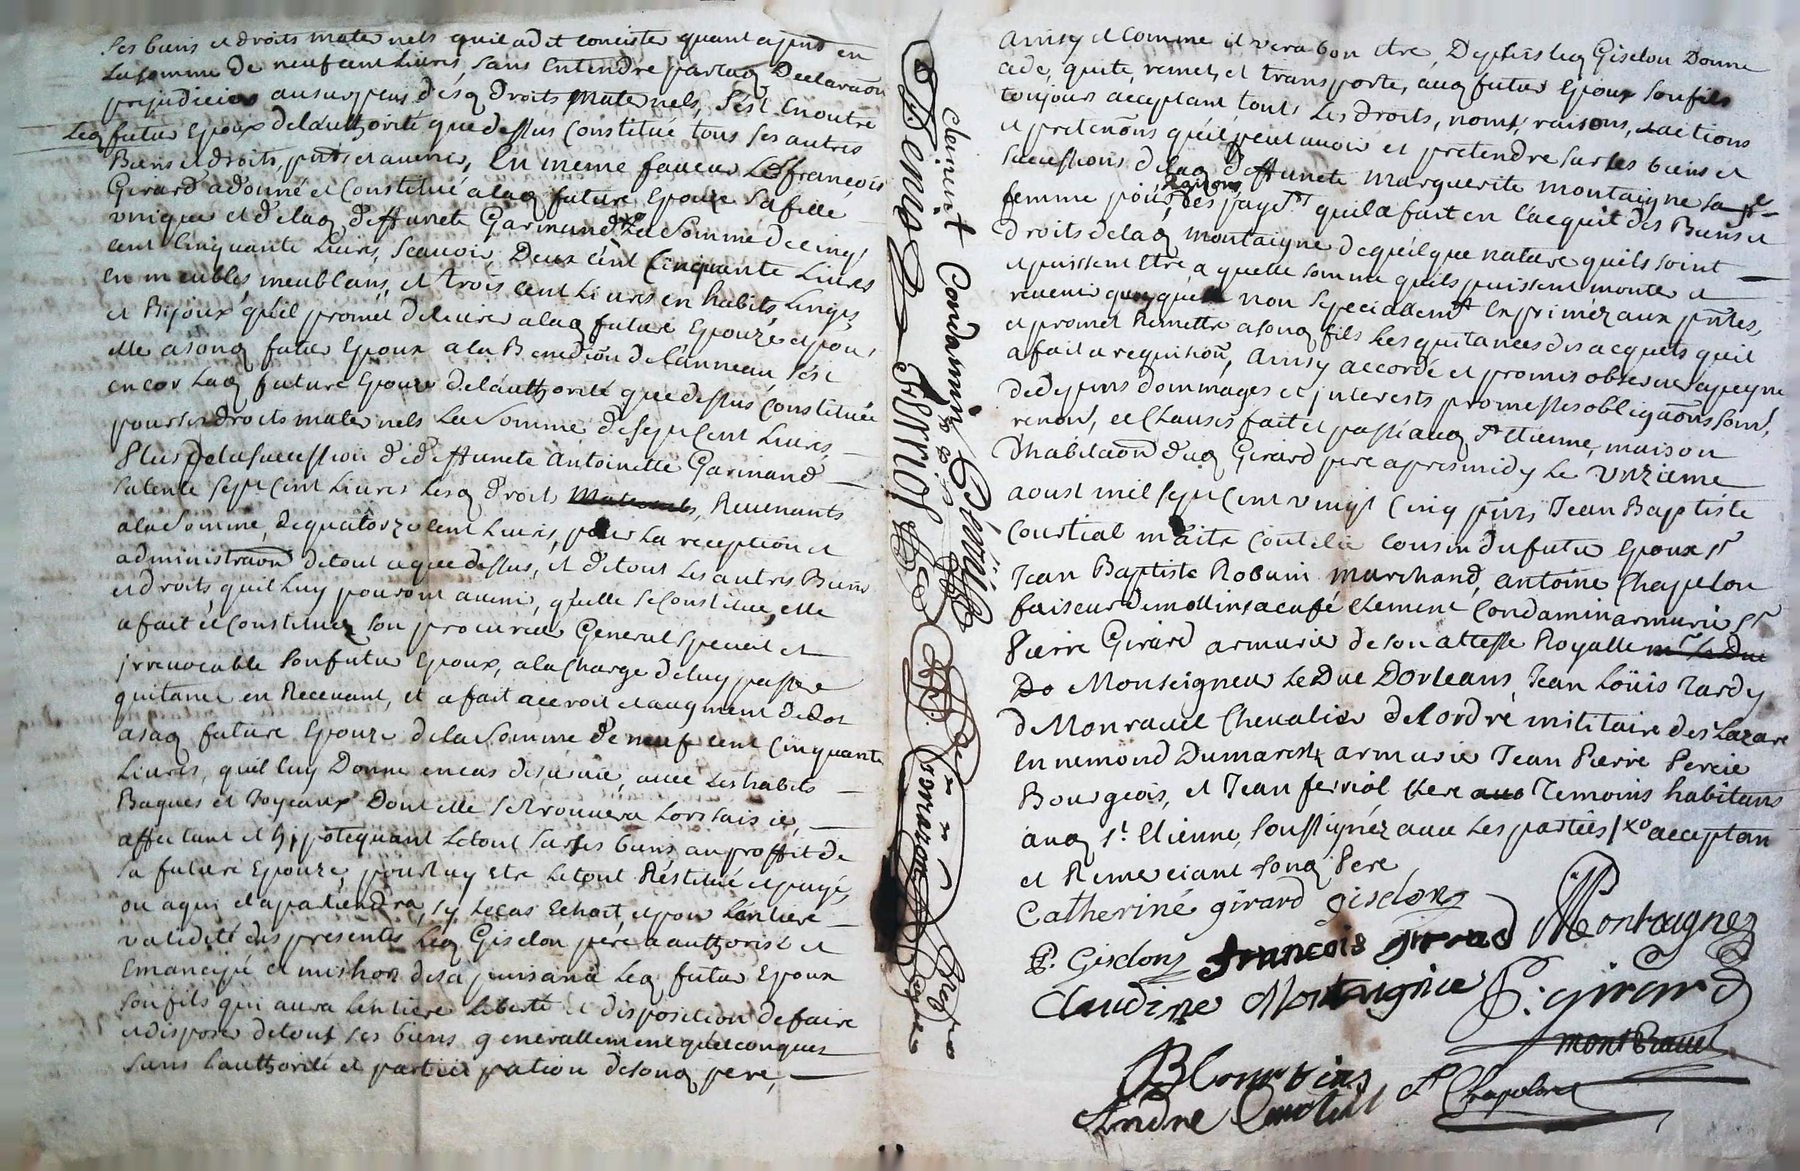 ses biens et droits maternels qu'il a dit concister quant a pnt en
La somme de neuf cent Livres, sans entendre par laq Declaraõn
prejudicier au surplus desq droits maternels, s'est en outre
Leq futur Epoux de lauthorité que dessus Constitué tous ses autres
Biens et droits, pnts et avenir, En meme faveur Led françois
Girard a donné et Constitué a laq future Epouze sa fille
unique et de laq deffunete Garinand La Somme de cinq
cent Cinquante Livres, Scauoir, Deux cent Cinquante Livres
en meubles meublans, et trois cent Livres en habits Linges
et Bijoux qu'il promet delivrer a laq future Epouze et pour
elle a sonq futur Epoux a la Benediõn de l'anneau, s'est
encor Laq future Epouze de lauthorité que dessus Constituée
pour ses droits maternels La Somme de sept Cent Livres,
Plus de la succession de deffunete Antoinette Garinand
sa tente sept Cent Livres Lesq droits maternels, Revenants
a la Somme de quatorze cent Livres, pour La reception et
administraõn de tout ce que dessus, et de tout Les autres Biens
et droits quil Luy pouront avenir, qu'elle se Constitue, elle
a fait et Constitué son procureur General special et
irrevocable son futur Epoux, a la Charge de luy passer
quitance en Recevant, et a fait accroit et augment de dot
a saq future Epouze de la Somme de neuf cent Cinquante
Livres, quil luy Donne en cas de survie, avec Les habits
Bagues et Joyeaux Dont elle se trouvera Lors saisie,
affectant et hipotequant Le tout sur ses biens au proffit de
sa future Epouze, pour Luy etre Le tout Restitué et payé,
ou a qui il apartiendra, sy Le cas Echoit, et pour L'entiere
validité des presentes Leq Gisclon père a authorisé et
Emancipé et mis hors de sa puissance Leq futur Epoux
son fils qui aura L'entiere Liberté et disposition de faire
et dispose de tout ses biens generallement quelconques
Sans L'authorité et participation de sonq pere,
clement Condamin
Ainsy et Comme il verra bon etre, De plus Leq Gisclon Donne
cede, quite, remet, et transporte, auq futur Epoux son fils
toujour acceptant, tous Les droits, noms, raisons, et actions
et pretenõns quil peut avoir et pretendre sur les biens et
successions de laq deffunete Marguerite montaigne sa
femme pour Raisons des payets quil a fait en l'acquit des Biens et
droits de laq montaigne de quelque nature quils soint
et puissent Etre a quelle somme quils puissent monter et
revenir quoy que non specialement Exprimez aux pntes,
et promet Remettre a sonq fils Les quitances des acquets quil
a fait a requisiõn, Ainsy accordé et promis observer a peyne
de depens dommages et interests promesses obligaõns soum,
renon, et Clauses fait et passé auq St Etienne, maison
d'habitaõn duq Girard pere apres midy Le Unzieme
aoust mil sept Cent vingt Cinq pnts Jean Baptiste
Courtial maitre Coutelier Cousin du futur Epoux Sr
Jean Baptiste Robain marchand, antoine Chapelon
faiseur de mollins a café Clement Condamin armurier Sr
Pierre Girard armurier de son altesse Royalle mr Le Duc
Do Monseigneur Le Duc D'orleans, Jean Loüis Tardy
de Monravel Chevalier de L'ordre militaire de St Lazare
Ennemond Dumarest armurier Jean Pierre Percie
Bourgeois, et Jean ferriol Clerc Temoins habitans
auq St Etienne, soussignéz avec Les parties / Xo acceptan
et Remerciant sonq Pere
Catherine girard gisclons
P. Gisclons françois girard Montaignes
Claudine Montaignie P. girard
montravel
JB Courtial
Andre Courtial A Chapelon